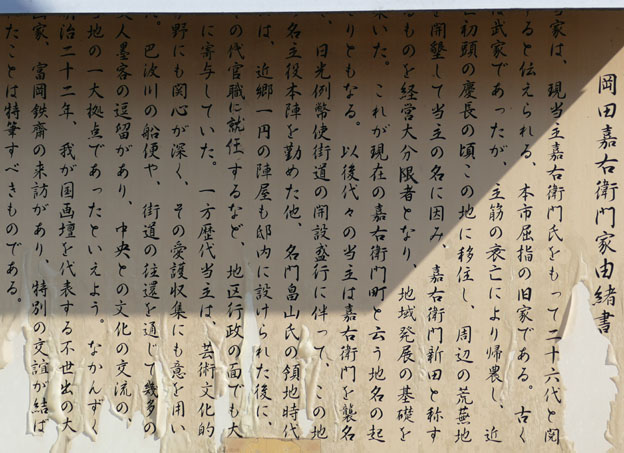 岡田嘉右衛門家由緒書
当家は、現当主嘉右衛門氏をもって二十六代と関
すると伝えられる、本市屈指の旧家である。古く
は武家であったが、主筋の衰亡により帰農し、近
世初頭の慶長の頃この地に移住し、周辺の荒蕪地
を開墾して当主の名に因み、嘉右衛門新田と称す
るものを経営大分限者となり、地域発展の基礎を
築いた。これが現在の嘉右衛門町と云う地名の起
りともなる。以後代々の当主は嘉右衛門を襲名
、日光例幣使街道の開設盛行に伴って、この地
名主役本陣を勤めた他、名門畠山氏の領地時代
は、近郷一円の陣屋も邸内に設けられた後に、
の代官職に就任するなど、地区行政の面でも大
に寄与していた。一方歴代当主は、芸術文化的
野にも関心が深く、その愛護収集にも意を用い
。巴波川の船便や、街道の往還を通じて幾多の
人墨客の逗留があり、中央との文化の交流の、
当地の一大拠点であったといえよう。なかんずく
治二十二年、我が国画壇を代表する不世出の大
家、富岡鉄斎の来訪があり、特別の交誼が結ば
たことは特筆すべきものである。